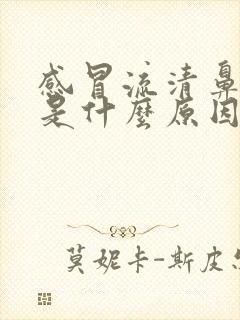 感冒流清鼻
是什麼原因
莫妮卡-斯皮